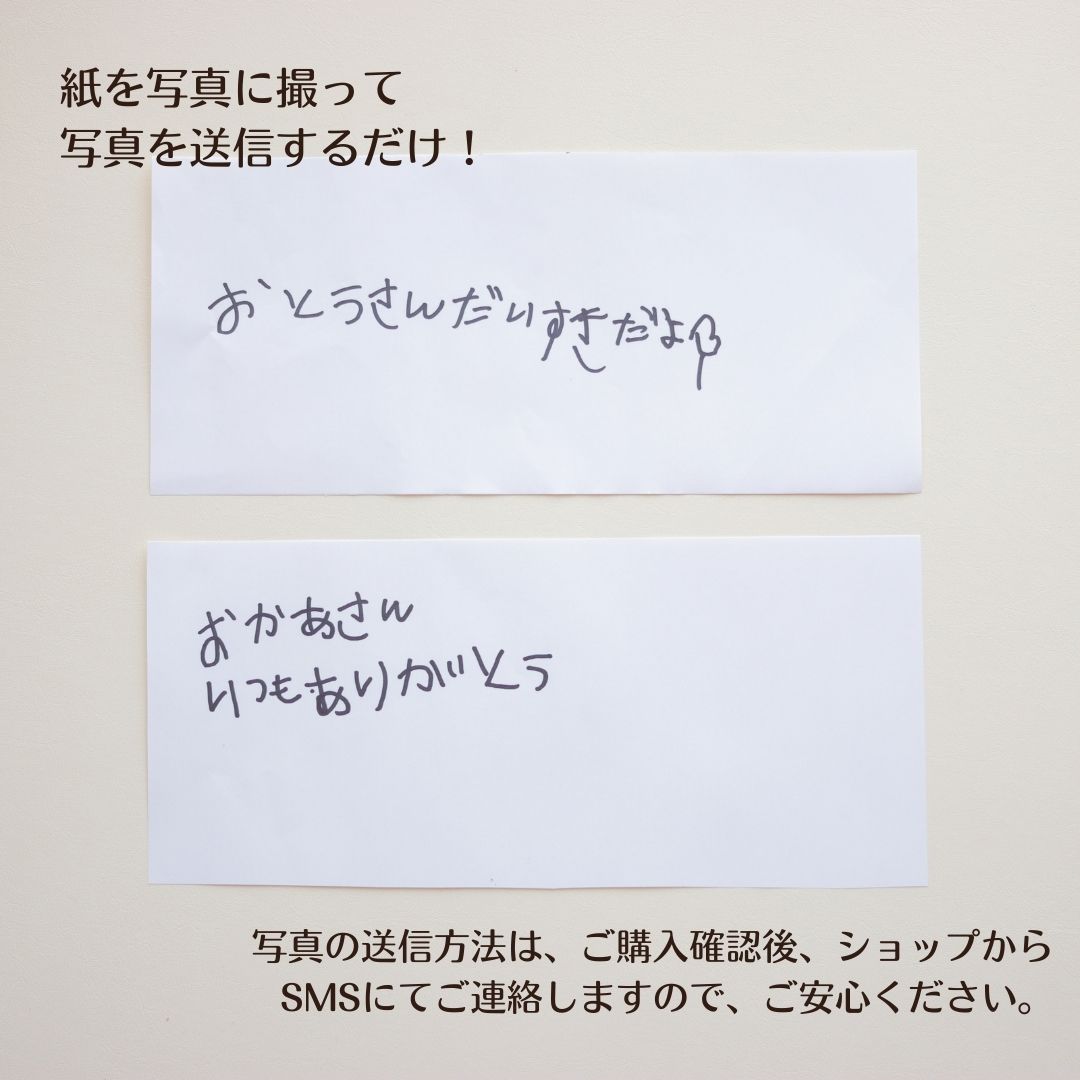 紙を写真に撮って
写真を送信するだけ！
おとうさんだいすきだよ
おかあさん
いつもありがとう
写真の送信方法は、ご購入確認後、ショップから
SMSにてご連絡しますので、ご安心ください。